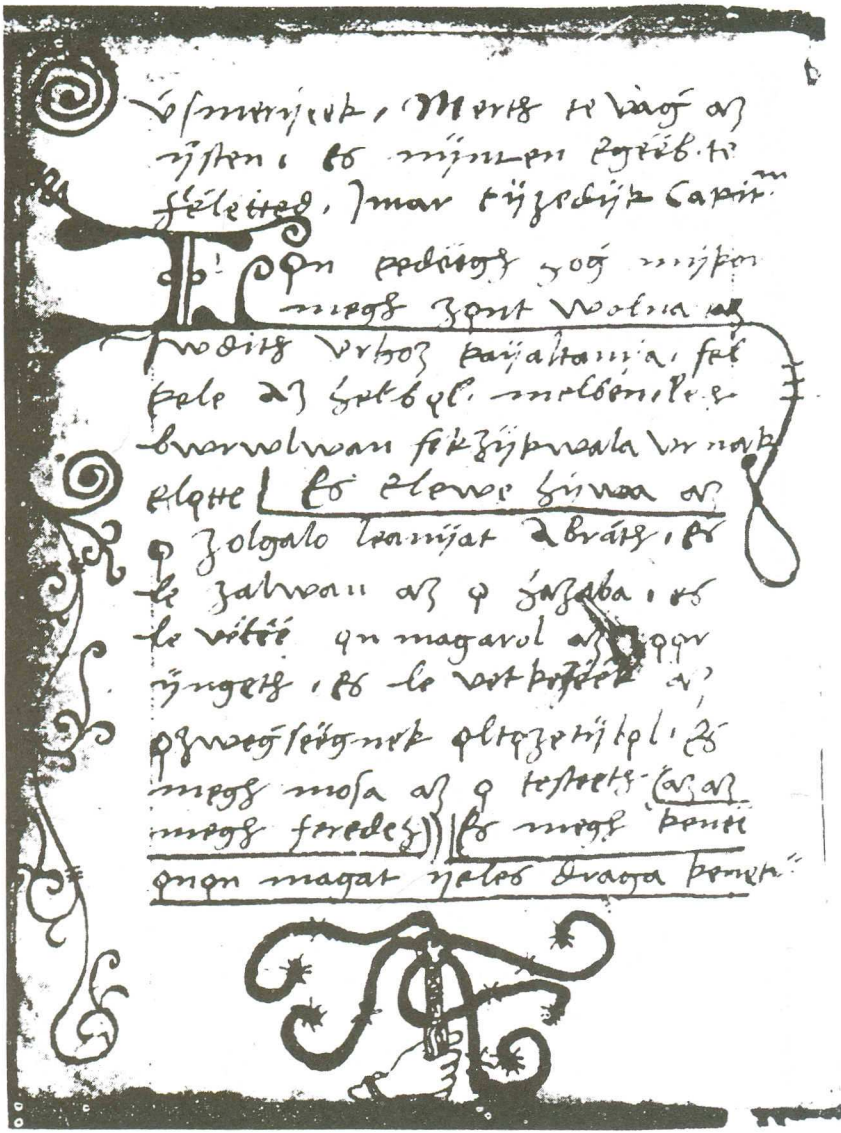 vsmerÿek, Merth te vag az
ÿsten, Es mÿnten Egeeb te
feletted, Jmar tÿzedÿk Capit̃m
Lon kedeegh hog mÿkor
megh zont wolna az
Jwdith vrhoz kaÿaltanÿa, fel
kele az helbol, melben le
bwrwlwan fekzÿkwala vr nak
elotte Es Elewe hÿwaa az
o zolgalo leanÿat Abrath, Es
le zalwan az o hazaba, es
le vetee on magarol az
ÿngeth, Es le vetkezeek az
ozwegseegnek oltozetÿkol, Es
megh mosa az o testeeth (az az
megh feredez)) Es megh kenee
onon magat ÿeles draga kenetÿ